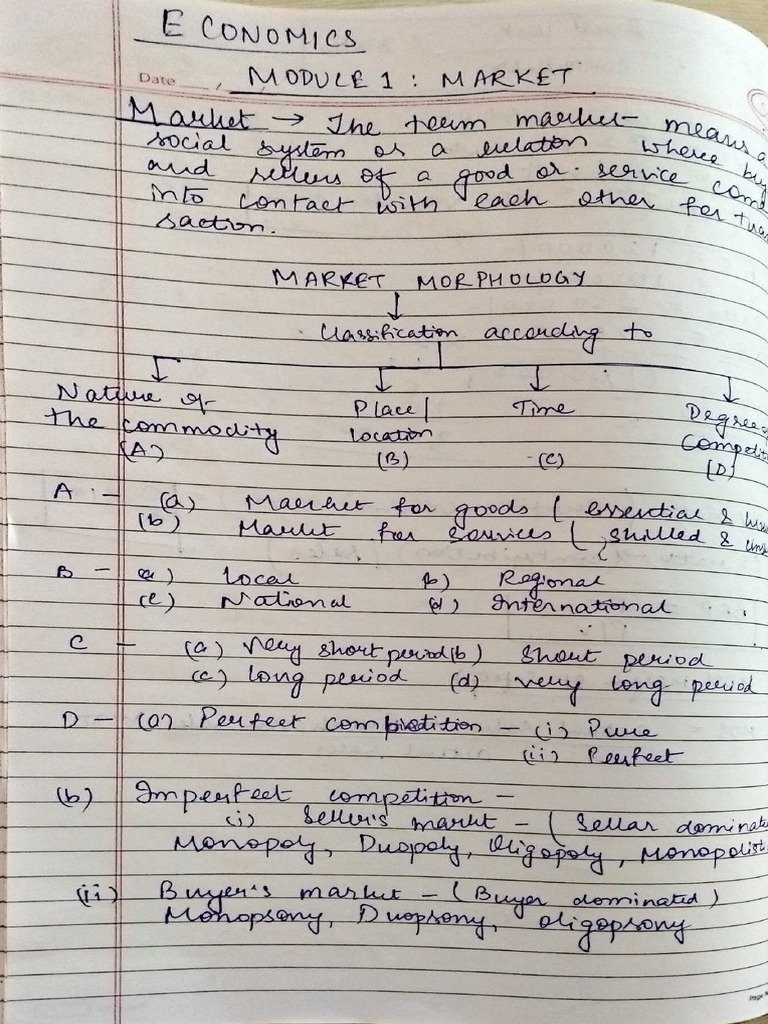 ECONOMICS
Date
MODULE 1 : MARKET
Market → The term market means a
social system or a relation where
and sellers of a good or service
into contact with each other for
saction.
MARKET MORPHOLOGY
Classification according to
Nature of the commodity (A)
Place/ location (B)
Time (C)
Degree (D)
A :- (a) Market for goods ( essential &
(b) Market for services ( skilled &
B - a) Local b) Regional
(c) National d) International
C - (a) Very short period (b) Short period
(c) long period (d) very long period
D - (a) Perfect competition - (i) Pure
(ii) Perfect
(b) Imperfect competition -
(i) Seller's market - ( Sellar
Monopoly, Duopoly, Oligopoly,
(ii) Buyer's market - (Buyer dominated)
Monopsony, Duopsony, oligopsony